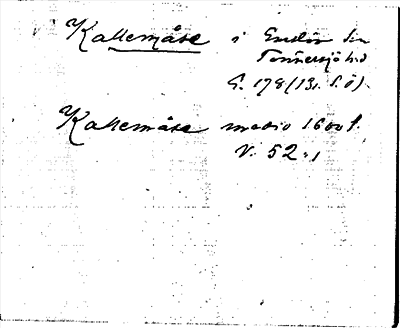 Kallemåse i Enslöv sn
Tönnersjö hd
S. 178 (Bl. S. Ö).
Kallemåse medio 1600 t.
V. 52:1